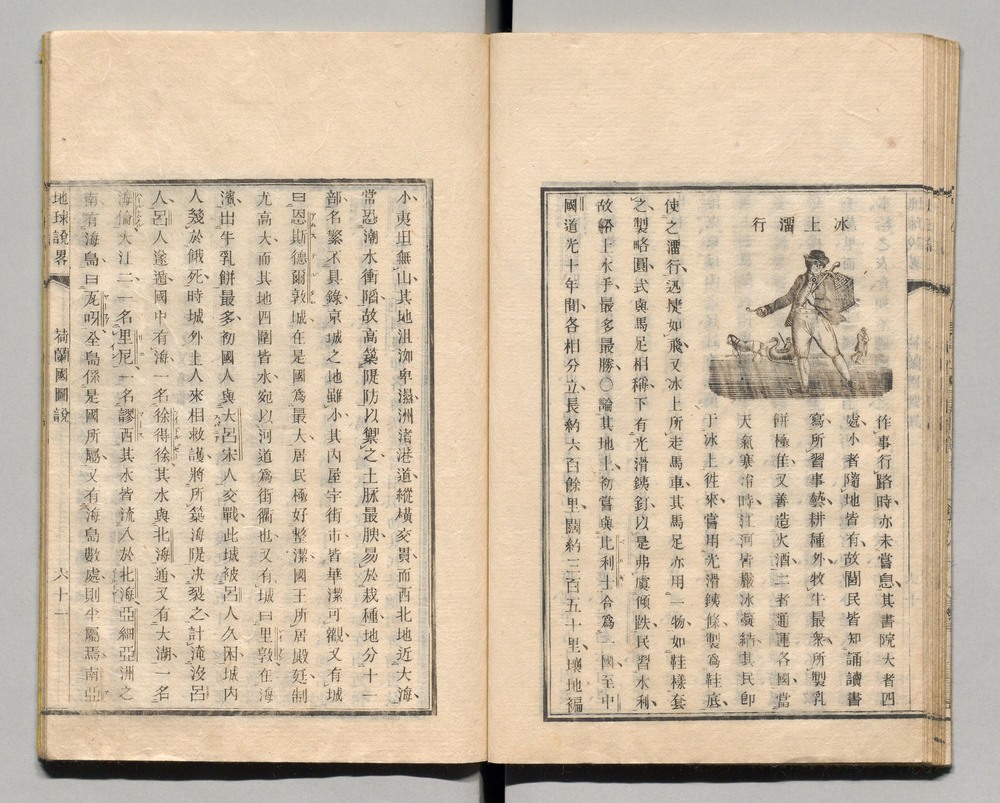 冰上溜行
作事行路時亦未嘗息其書院大者四
處小者隨地皆有故閭民皆知誦讀書
寫所習事藝耕種外牧牛最衆所製乳
餅極佳又善造火酒二者通運各國當
天氣寒冷時江河皆嚴冰凝結其民卽
于冰上徃來嘗用光滑鐵條製爲鞋底
使之溜行迅捷如飛又冰上所走馬車其馬足亦用一物如鞋樣套
之製略圓式與馬足相稱下有光滑鐵釘以是弗虞傾跌民習水利
故船上水手最多最勝〇論其地土初嘗與比利十合爲一國至中
國道光十年間各相分立長約六百餘里闊約三百五十里壤地褊
小夷坦無山其地沮洳卑濕洲渚港道縱橫交貫而西北地近大海
常恐潮水衝陷故高築隄防以禦之土脉最腴易於栽種地分十一
部名繁不具錄京城之地雖小其內屋宇街市皆華潔可觀又有城
曰恩斯德爾敦城在是國爲最大居民極好整潔國王所居殿廷制
尤高大而其地四圍皆水宛以河道爲街衢也又有城曰里敦在海
濱出牛乳餅最多初國人與大呂宋人交戰此城被呂人久困城內
人幾於餓死時城外土人來相救護將所築海隄決裂之計淹沒呂
人呂人遂遁國中有海一名徐得徐其水與北海通又有大湖一名
海倫大江二一名里尼一名謬西其水皆流入於北海亞細亞洲之
南有海島曰瓦呀全島係是國所屬又有海島數處則半屬焉南亞
地球說畧 荷蘭國圖說 六十一